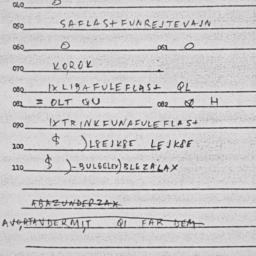 040 O
050 SAFLASTFUNRESTEVASN
060 O 061 O
070 KOROK
080 1XLIBAFULEFLAST QL
081 = OLT QU 082 Q H
090 1XTRINKFUNAFULEFLAST
100 $ )LSEJKBE LEJKBE
110 $ )-BULGELEX)BLEZALAX
ABAZUNDERZAX
AVORTAVDERMIT QI FAR DEM